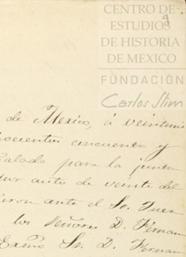 CENTRO DE
ESTUDIOS
DE HISTORIA
DE MEXICO
FUNDACIÓN
Carlos Slim
de Mexico, á veintiuno
cincuenta y
para la junta
ante de veinte del
ante el Sr. Juez
los Señores D. Fernan
Exmo Sr. D. Fernan